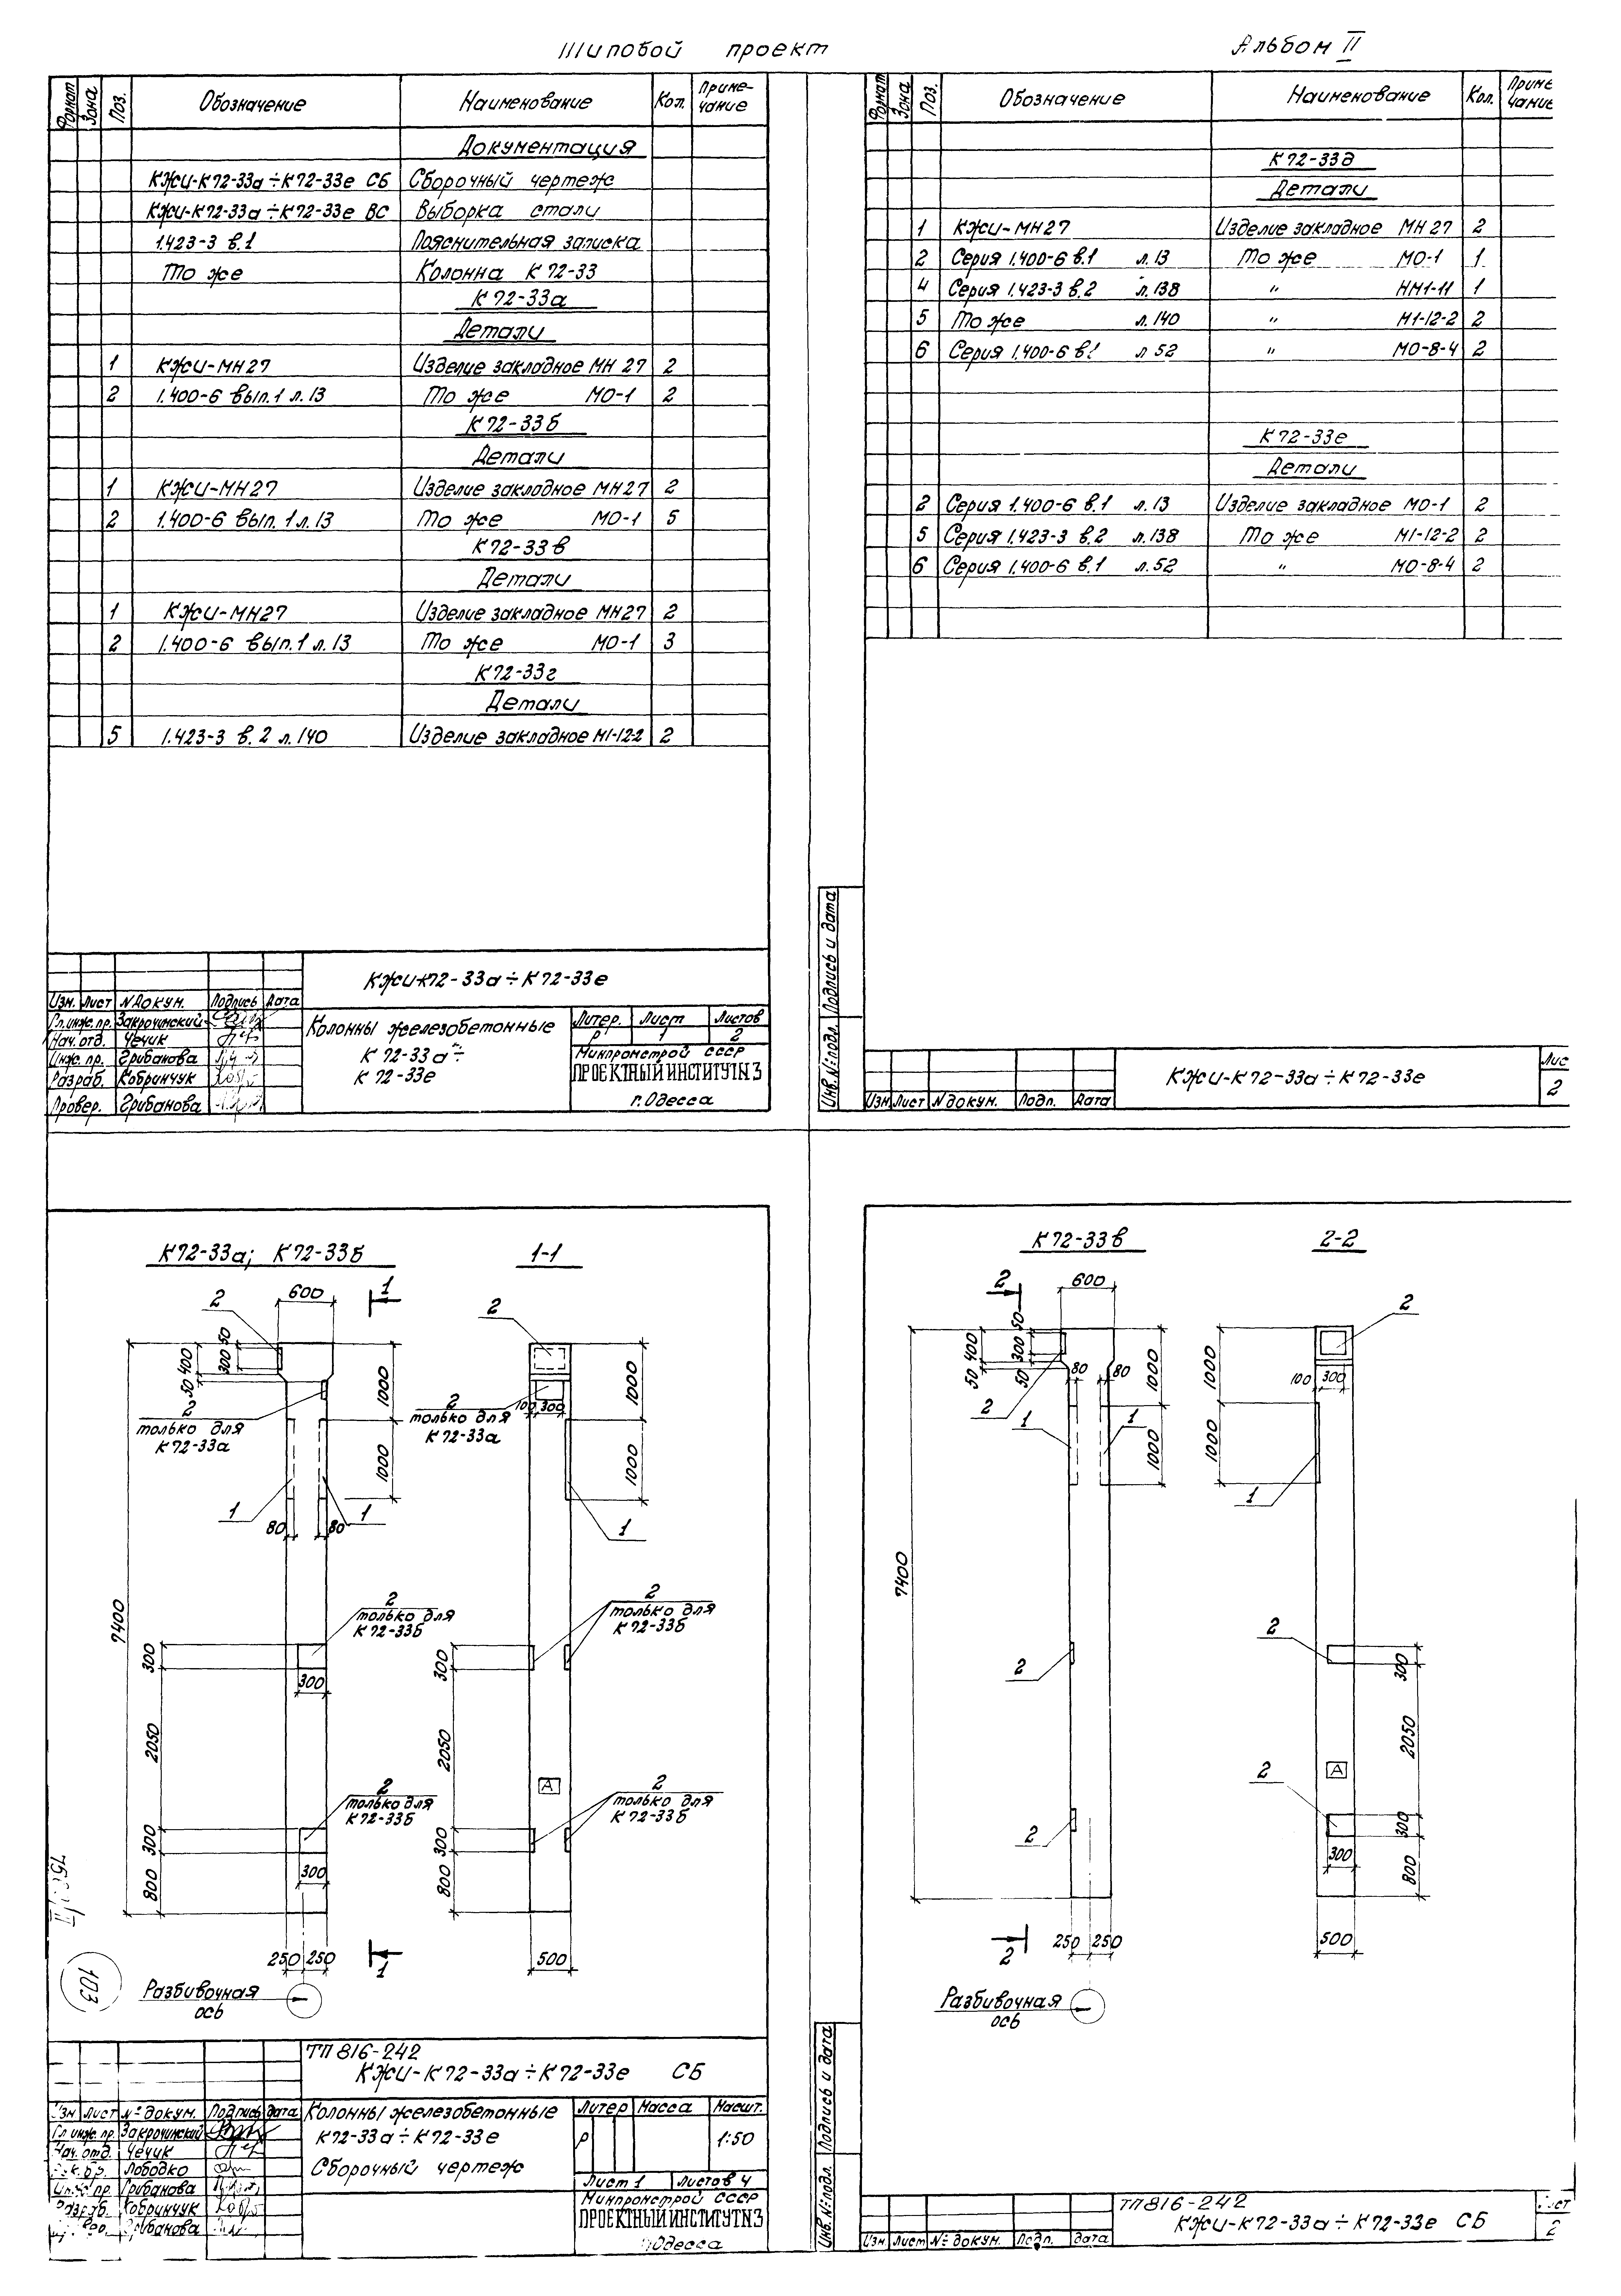 Типовой проект
Альбом II
Формат Зона Поз. Обозначение Наименование Кол. Приме-чание
Документация
КЖИ-К72-33а÷К72-33е СБ Сборочный чертеж
КЖИ-К72-33а÷К72-33е ВС Выборка стали
1.423-3 в.1 Пояснительная записка
То же Колонна К72-33
К72-33а
Детали
1 КЖИ-МН27 Изделие закладное МН 27 2
2 1.400-6 вып.1 л.13 То же МО-1 2
К72-33б
Детали
1 КЖИ-МН27 Изделие закладное МН27 2
2 1.400-6 вып.1 л.13 То же МО-1 5
К72-33в
Детали
1 КЖИ-МН27 Изделие закладное МН27 2
2 1.400-6 вып.1 л.13 То же МО-1 3
К72-33г
Детали
5 1.423-3 в.2 л.140 Изделие закладное М1-12-2 2
КЖИ-К72-33а÷К72-33е
Изм. Лист N докум. Подпись Дата
Гл.инж.пр. Закрочинский
Нач.отд. Чечик
Инж.пр. Грибанова
Разраб. Кобринчук
Провер. Грибанова
Колонны железобетонные
К72-33а÷
К72-33е
Литер. Лист Листов
Р 1 2
Минпромстрой СССР
ПРОЕКТНЫЙ ИНСТИТУТ N3
г.Одесса
Формат Зона Поз. Обозначение Наименование Кол. Приме чание
К72-33д
Детали
1 КЖИ-МН27 Изделие закладное МН27 2
2 Серия 1.400-6 в.1 л.13 То же МО-1 1
4 Серия 1.423-3 в.2 л.138 " НМ1-11 1
5 То же л.140 " М1-12-2 2
6 Серия 1.400-6 в.1 л 52 " МО-8-4 2
К72-33е
Детали
2 Серия 1.400-6 в.1 л.13 Изделие закладное МО-1 2
5 Серия 1.423-3 в.2 л.138 То же М1-12-2 2
6 Серия 1.400-6 в.1 л.52 " МО-8-4 2
Инв.№подл. Подпись и дата
Изм Лист N докум. Подп. Дата
КЖИ-К72-33а÷К72-33е
Лис
2
К72-33а; К72-33б
1-1
600
1
2
2
50
400
300
50
1000
1000
2
только для
К72-33а
2
только для
К72-33а
100 300
1000
1000
1
1
80
80
1
7400
2
только для
К72-33б
2
только для
К72-33б
300
300
300
2050
2050
А
2
только для
К72-33б
2
только для
К72-33б
300
300
300
800
800
250 250
1
500
Разбивочная
ось
103
ТП816-242
КЖИ-К72-33а÷К72-33е СБ
Изм Лист № докум. Подпись дата
Гл.инж.пр. Закрочинский
Нач.отд. Чечик
Лободко
Грибанова
Кобринчук
Грибанова
Колонны железобетонные
К72-33а÷К72-33е
Сборочный чертеж
Литер Масса Масшт.
Р 1:50
Лист 1 Листов 4
Минпромстрой СССР
ПРОЕКТНЫЙ ИНСТИТУТ N3
Одесса
К72-33в
2-2
2
600
2
50
400
300
50
50
80
80
1000
1000
2
1
1
1000
1000
100 300
1
7400
2
2
300
2050
А
2
2
300
300
800
2
250 250
500
Разбивочная
ось
Инв.№подл. Подпись и дата
Изм Лист № докум. Подп. дата
ТП816-242
КЖИ-К72-33а÷К72-33е СБ
Лист
2